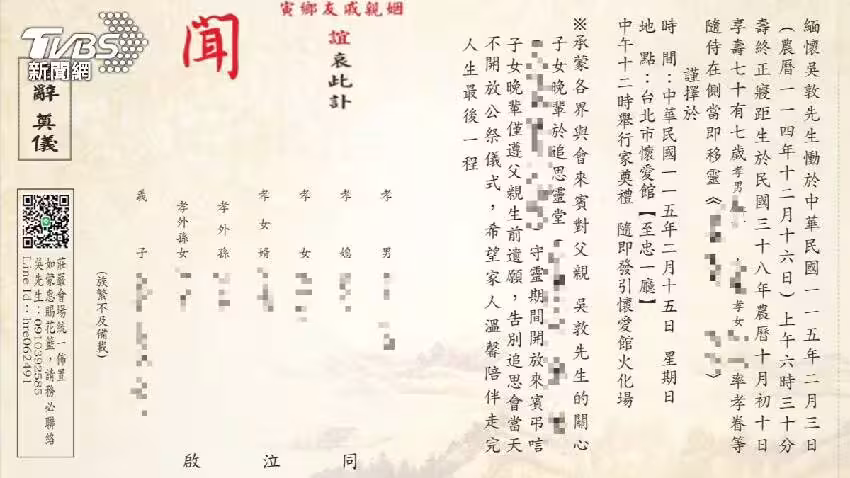 緬懷吳敦先生慟於中華民國一一五年二月三日
(農曆一一四年十二月十六日)上午六時三十分
壽終正寢距生於民國三十八年農曆十月初十日
享壽七十有七歲孝男、孝女率孝眷等
隨侍在側當即移靈《》
謹擇於
時 間:中華民國一一五年二月十五日 星期日
地 點:台北市懷愛館【至忠一廳】
中午十二時舉行家奠禮 隨即發引懷愛館火化場
※承蒙各界與會來賓對父親 吳敦先生的關心
子女晚輩於追思靈堂(
)守靈期間開放來賓弔唁
子女晚輩僅遵父親生前遺願,告別追思會當天
不開放公祭儀式,希望家人溫馨陪伴走完
人生最後一程
姻親戚友鄉寅
誼哀此訃
聞
孝男
孝媳
孝女
孝女婿
孝外孫
孝外孫女
義子
(族繁不及備載)
同泣啟
TVBS
新聞網
辭奠儀
莊嚴會場統一佈置
如蒙惠賜花籃,請務必聯絡
吳先生:0910392585
Line Id:lne062491